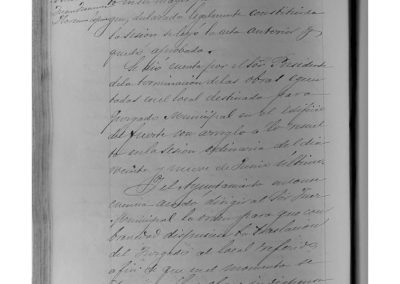 declarada legalmente constituida
la sesión se leyó la acta anterior y
quedó aprobada.
Se dió cuenta por el Sor. Presidente
de la terminación de las obras ejecu
tadas en el local destinado para
Juzgado Municipal en el edificio
del Fuerte con arreglo a lo resuel
to en la sesión ordinaria del dia
veinte nueve de Junio último
Y el Ayuntamiento en
acordó dirigir al Sor. Juez
Municipal la orden para que con
brevedad disponga la traslacion
del Juzgado al local referido
a fin de que en el momento se